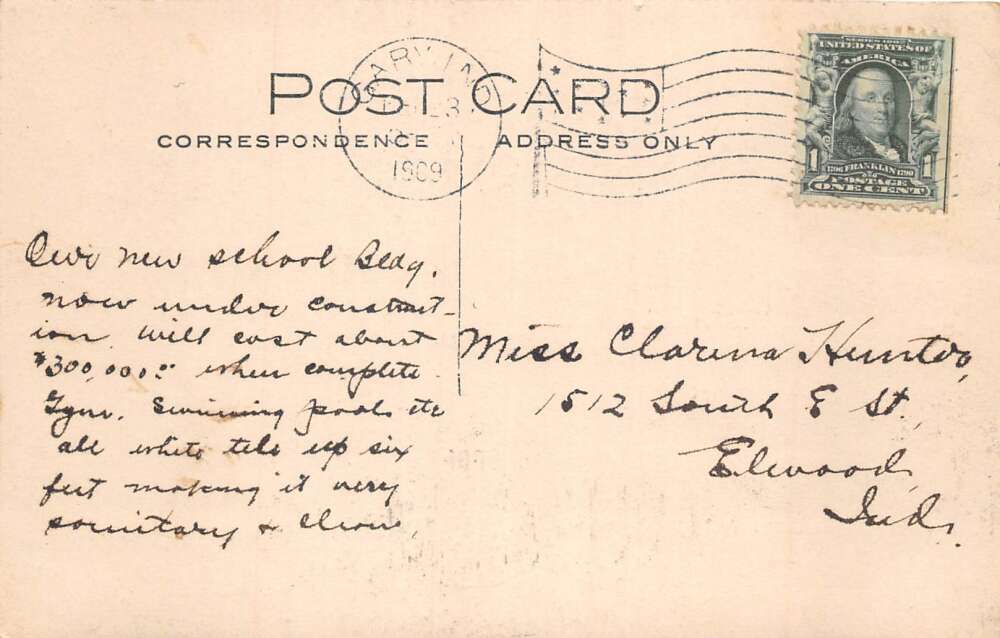 POST CARD
CORRESPONDENCE
ADDRESS ONLY
GARY IND
23
1909
SERIES 1902
UNITED STATES OF
AMERICA
1
1
1706 FRANKLIN 1790
POSTAGE
ONE CENT
Our new school Bldg.
now under construct-
ion will cost about
$300,000.00 when complete
Gym. Swimming pools etc
all white tile up six
feet making it very
sanitary &
Miss Clarena Hunter,
1512 South E St.
Elwood,
Ind.